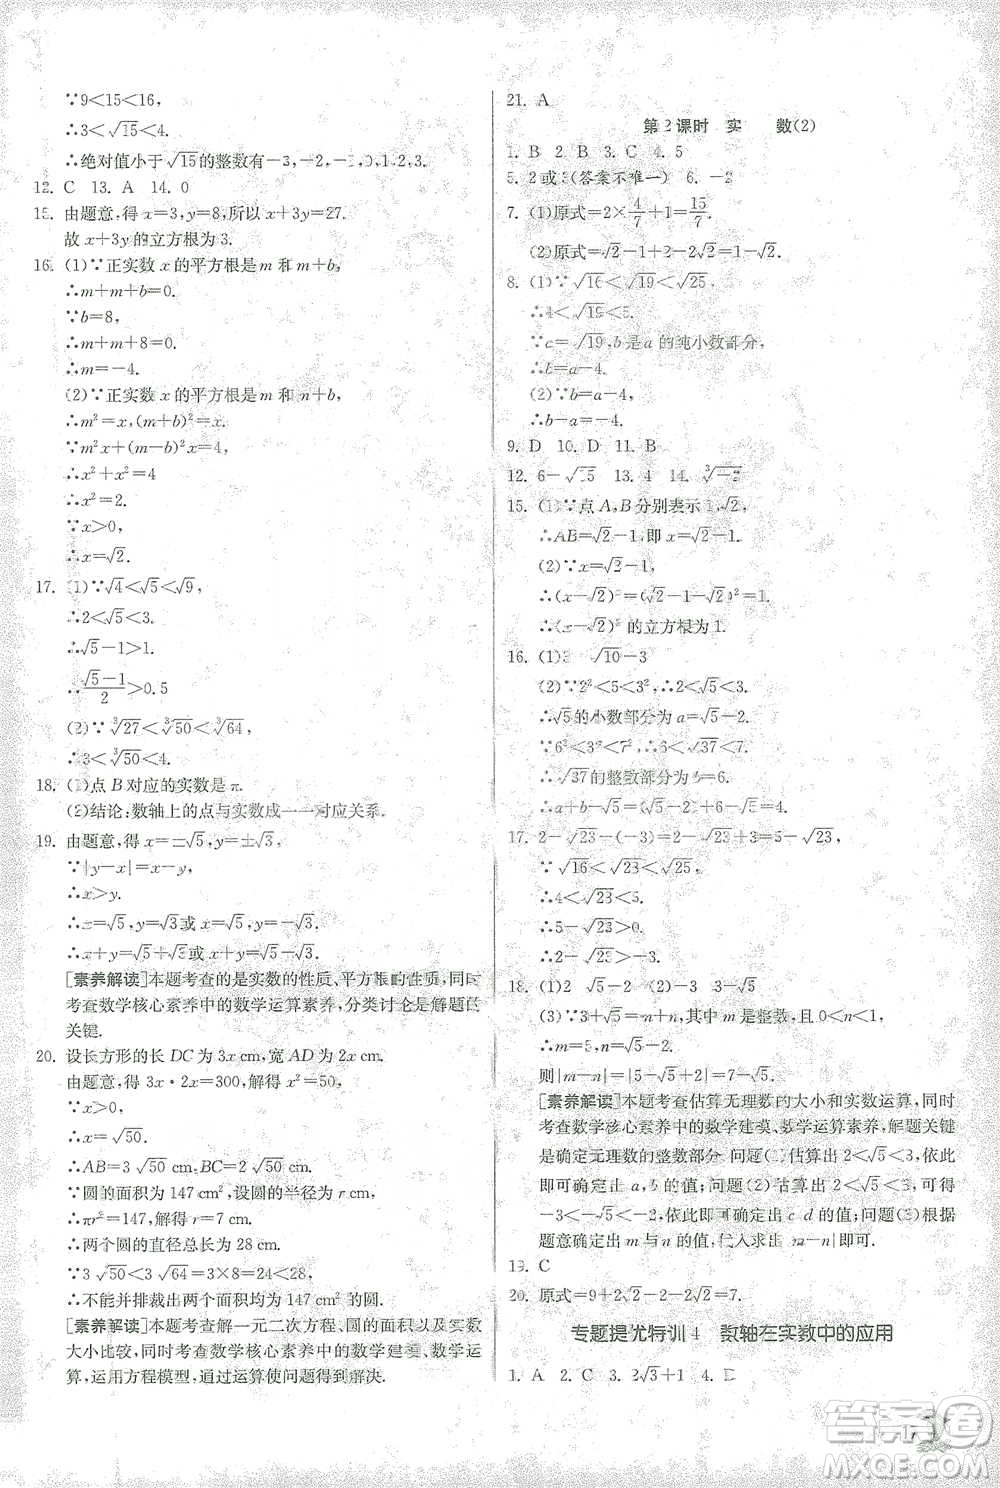 ∵9<15<16,
∴3<√15<4.
∴绝对值小于√15的整数有-3,-2,-1,0,1,2,3.
12. C 13. A 14. 0
15. 由题意,得 x=3,y=8,所以 x+3y=27.
故 x+3y 的立方根为 3.
16. (1)∵正实数 x 的平方根是 m 和 m+b,
∴m+m+b=0.
∵b=8,
∴m+m+8=0.
∴m=-4.
(2)∵正实数 x 的平方根是 m 和 m+b,
∴m²=x,(m+b)²=x.
∵m²x+(m+b)²x=4
∴x²+x²=4
∴x²=2.
∵x>0,
∴x=√2.
17. (1)∵√4<√5<√9,
∴2<√5<3.
∴√5-1>1.
∴(√5-1)/2>0.5
(2)∵³√27<³√50<³√64,
∴3<³√50<4.
18. (1)点 B 对应的实数是 π.
(2)结论:数轴上的点与实数成一一对应关系.
19. 由题意,得 x=±√5,y=±√3.
∵|y-x|=x-y,
∴x>y.
∴x=√5,y=√3或 x=√5,y=-√3.
∴x+y=√5+√3或 x+y=√5-√3.
[素养解读]本题考查的是实数的性质、平方根的性质,同时
考查数学核心素养中的数学运算素养,分类讨论是解题的
关键.
20. 设长方形的长 DC 为 3x cm,宽 AD 为 2x cm.
由题意,得 3x·2x=300,解得 x²=50,
∵x>0,
∴x=√50.
∴AB=3√50 cm,BC=2√50 cm.
∵圆的面积为 147 cm²,设圆的半径为 r cm,
∴πr²=147,解得 r=7.
∴两个圆的直径总长为 28 cm.
∵3√50<3√64=3×8=24<28,
∴不能并排裁出两个面积均为 147 cm²的圆.
[素养解读]本题考查了解一元二次方程、圆的面积以及实数
大小比较,同时考查了数学核心素养中的数学建模、数学运算
素养,运用方程模型,通过运算使问题得到解决.
21. A
第 2 课时 实 数(2)
1. B 2. B 3. C 4. 5
5. 2或3(答案不唯一) 6. -2
7. (1)原式=2×4/7+1=15/7.
(2)原式=√2-1+2-2√2=1-√2.
8. (1)∵√16<√19<√25,
∴4<√19<5.
∵a=√19,b是 a 的纯小数部分,
∴b=a-4.
(2)∵b=a-4,
∴b-a=-4.
9. D 10. D 11. B
12. 6-√15 13. 4 14. ³√-2
15. (1)∵点 A,B 分别表示 1,√2,
∴AB=√2-1,即 x=√2-1.
(2)∵x=√2-1,
∴(x-√2)²=(√2-1-√2)²=1.
∴(x-√2)²的立方根为 1.
16. (1)3 √10-3
(2)∵2²<5<3²,∴2<√5<3.
∴√5的小数部分为 a=√5-2.
∵6²<37<7²,∴6<√37<7.
∴√37的整数部分为 b=6.
∴a+b-√5=√5-2+6-√5=4.
17. 2-√23-(-3)=2-√23+3=5-√23,
∵√16<√23<√25,
∴4<√23<5.
∴5-√23>0.
∴2-√23>-3.
18. (1)2 √5-2 (2)-3 3-√5
(3)∵3+√5=m+n,其中 m 是整数,且 0<n<1,
∴m=5,n=3+√5-5=√5-2.
则|m-n|=|5-√5+2|=7-√5.
[素养解读]本题考查估算无理数的大小和实数运算,同时
考查数学核心素养中的数学建模、数学运算素养,解题关键
是确定无理数的整数部分.问题(1)估算出 2<√5<3,可
得到 a,b 的值;问题(2)估算出 2<√5<3,可得
-3<-√5<-2,可以确定出 c,d 的值;问题(3)根据
题意确定出 m 与 n 的值,代入|m-n|即可.
19. C
20. 原式=9+2√2-2-2√2=7.
专题提优特训 4 数轴在实数中的应用
1. A 2. C 3. 2√3+1 4.
答案圈
MXQE.COM